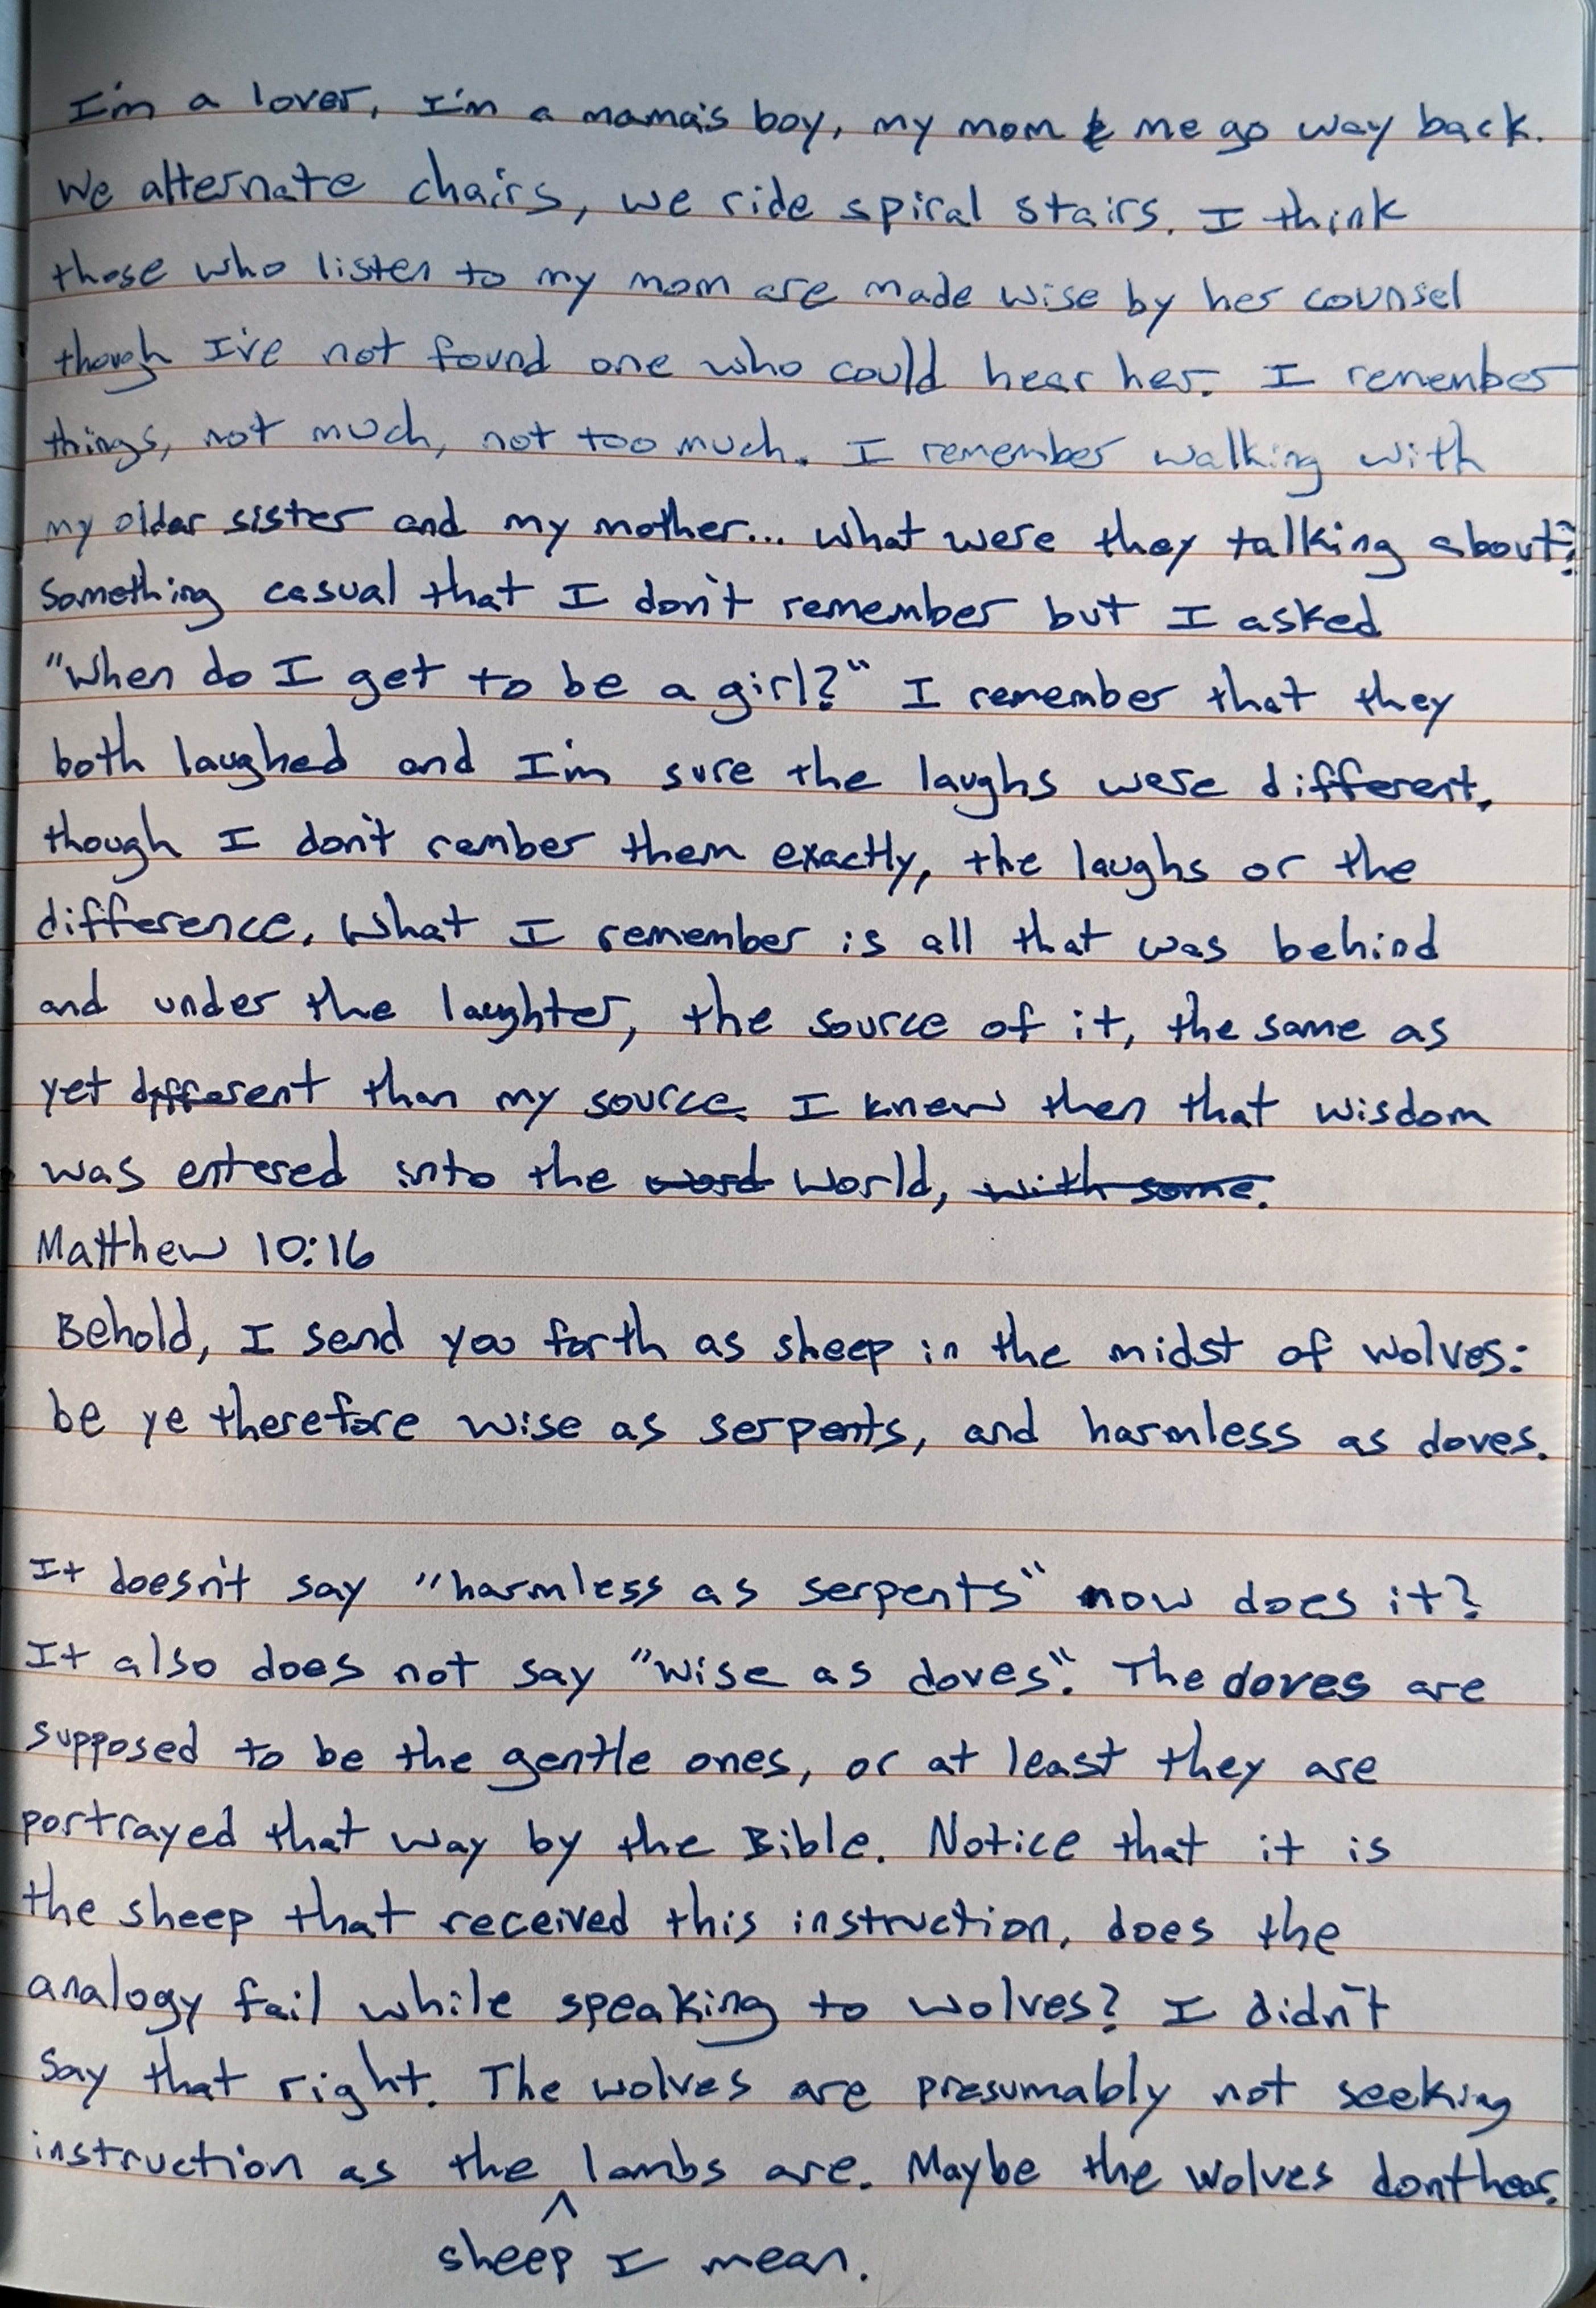 I'm a lover, I'm a mama's boy, my mom & me go way back.
We alternate chairs, we ride spiral stairs. I think
those who listen to my mom are made wise by her counsel
though I've not found one who could hear her. I remember
things, not much, not too much. I remember walking with
my older sister and my mother... what were they talking about?
Something casual that I don't remember but I asked
"When do I get to be a girl?" I remember that they
both laughed and I'm sure the laughs were different,
though I don't rember them exactly, the laughs or the
difference. What I remember is all that was behind
and under the laughter, the source of it, the same as
yet different than my source. I knew then that wisdom
was entered into the word world, with some.
Matthew 10:16
Behold, I send you forth as sheep in the midst of wolves:
be ye therefore wise as serpents, and harmless as doves.
It doesn't say "harmless as serpents" now does it?
It also does not say "wise as doves". The doves are
supposed to be the gentle ones, or at least they are
portrayed that way by the Bible. Notice that it is
the sheep that received this instruction, does the
analogy fail while speaking to wolves? I didn't
say that right. The wolves are presumably not seeking
instruction as the lambs are. Maybe the wolves dont hear.
^
sheep I mean.